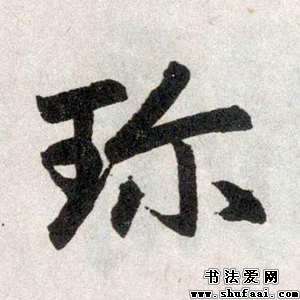 珎
书法爱网
www.shufaai.com